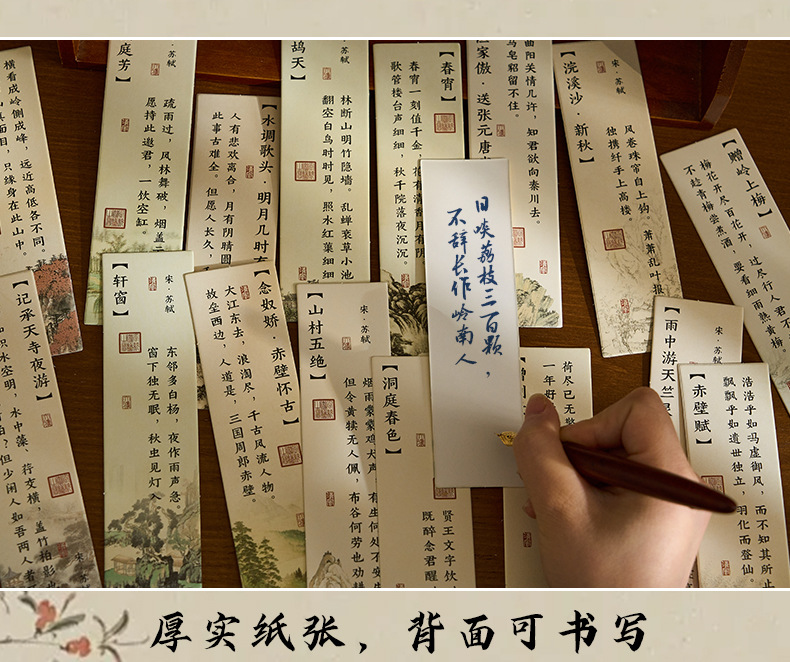 横看成岭侧成峰，远近高低各不同。
只缘身在此山中。
庭芳】
宋·苏轼
疏雨过，风林舞破，烟盖云
愿持此邀君，一饮空缸。
【水调歌头·明月几时有
人有悲欢离合，月有阴晴圆
此事古难全。但愿人长久，千
鸪天】
宋·苏轼
林断山明竹隐墙。乱蝉衰草小池
翻空白鸟时时见，照水红蕖细细
【春宵】
春宵一刻值千金，花有清香月有阴
歌管楼台声细细，秋千院落夜沉沉。
渔家傲·送张元唐
曲阳关情几许，知君欲向秦川去。
马皂貂留不住。
【浣溪沙·新秋】
宋·苏轼
风卷珠帘自上钩
萧萧乱叶报
独携纤手上高楼
【赠岭上梅】
梅花开尽百花开，过尽行人君不
不趁青梅尝煮酒，要看细雨熟黄梅。
日啖荔枝三百颗，
不辞长作岭南人
【记承天寺夜游】
宋·苏轼
积水空明，水中藻、荇交横，盖竹柏影也
但少闲人如吾两人者
【轩窗】
宋·苏轼
东邻多白杨，夜作雨声急。
窗下独无眠，秋虫见灯入
【念奴娇·赤壁怀古】
大江东去，浪淘尽，千古风流人物。
故垒西边，人道是，三国周郎赤壁。
【山村五绝】
宋·苏轼
烟雨蒙蒙鸡犬声，有生何处不安生
但令黄犊无人佩，布谷何劳也劝耕
【洞庭春色】
贤王文字饮，
既醉念君醒，
荷尽已无擎
一年好
【雨中游天竺
宋·苏轼
【赤壁赋】
浩浩乎如冯虚御风，而不知其所止
飘飘乎如遗世独立，羽化而登仙。
厚实纸张，背面可书写